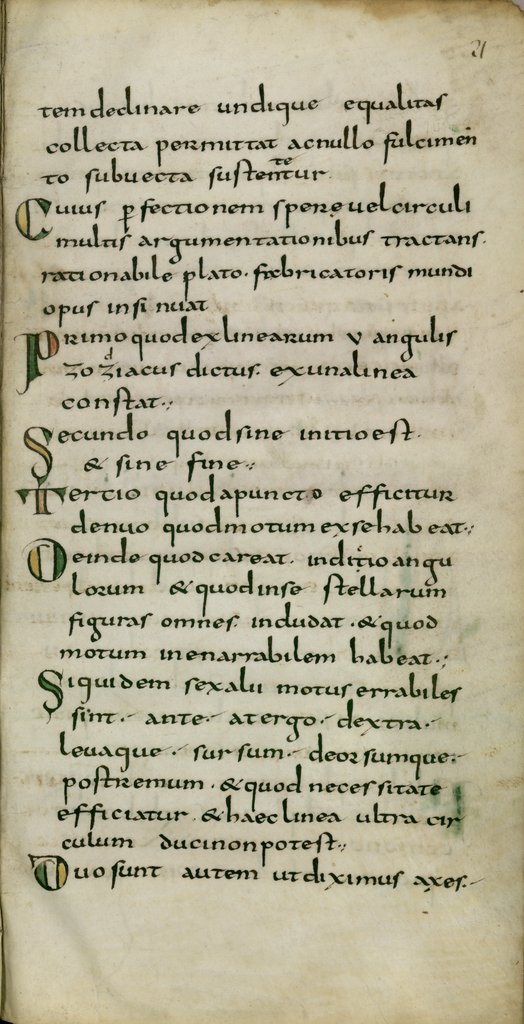 21
tem declinare undique equalitas
collecta permittat ac nullo fulcimen̄
to subuecta sustentetur
Cuius ꝑfectionem spere uel circuli
multis argumentationibus tractans.
rationabile plato. fabricatoris mundi
opus insinuat
Primo quod ex linearum v angulis
zodziacus dictus. ex una linea
constat.,
Secundo quod sine initio est.
& sine fine.,
Tertio quod a puncto efficitur
denuo quod motum ex se habeat.,
Deinde quod careat. inditio angu
lorum & quod in se stellarum
figuras omnes. includat. & quod
motum inenarrabilem habeat.,
Siquidem sex alii motus errabiles
sint. ante. a tergo. dextra.
leuaque. sursum. deorsumque.
postremum. & quod necessitate
efficiatur. & haec linea ultra cir
culum duci non potest.,
Duo sunt autem ut diximus axes.